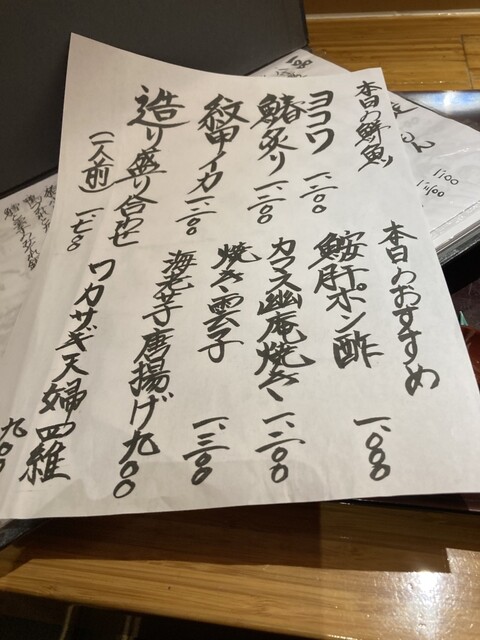 本日の鮮魚
ヨコワ 一、二〇〇
鰆炙り 一、二〇〇
紋甲イカ 一、二〇〇
造り盛り合わせ
(一人前) 一、七〇〇
本日のおすすめ
鮟肝ポン酢 一、〇〇〇
カマス幽庵焼き 一、二〇〇
焼き雲子 一、三〇〇
海老芋唐揚げ 九〇〇
ワカサギ天婦羅 九〇〇